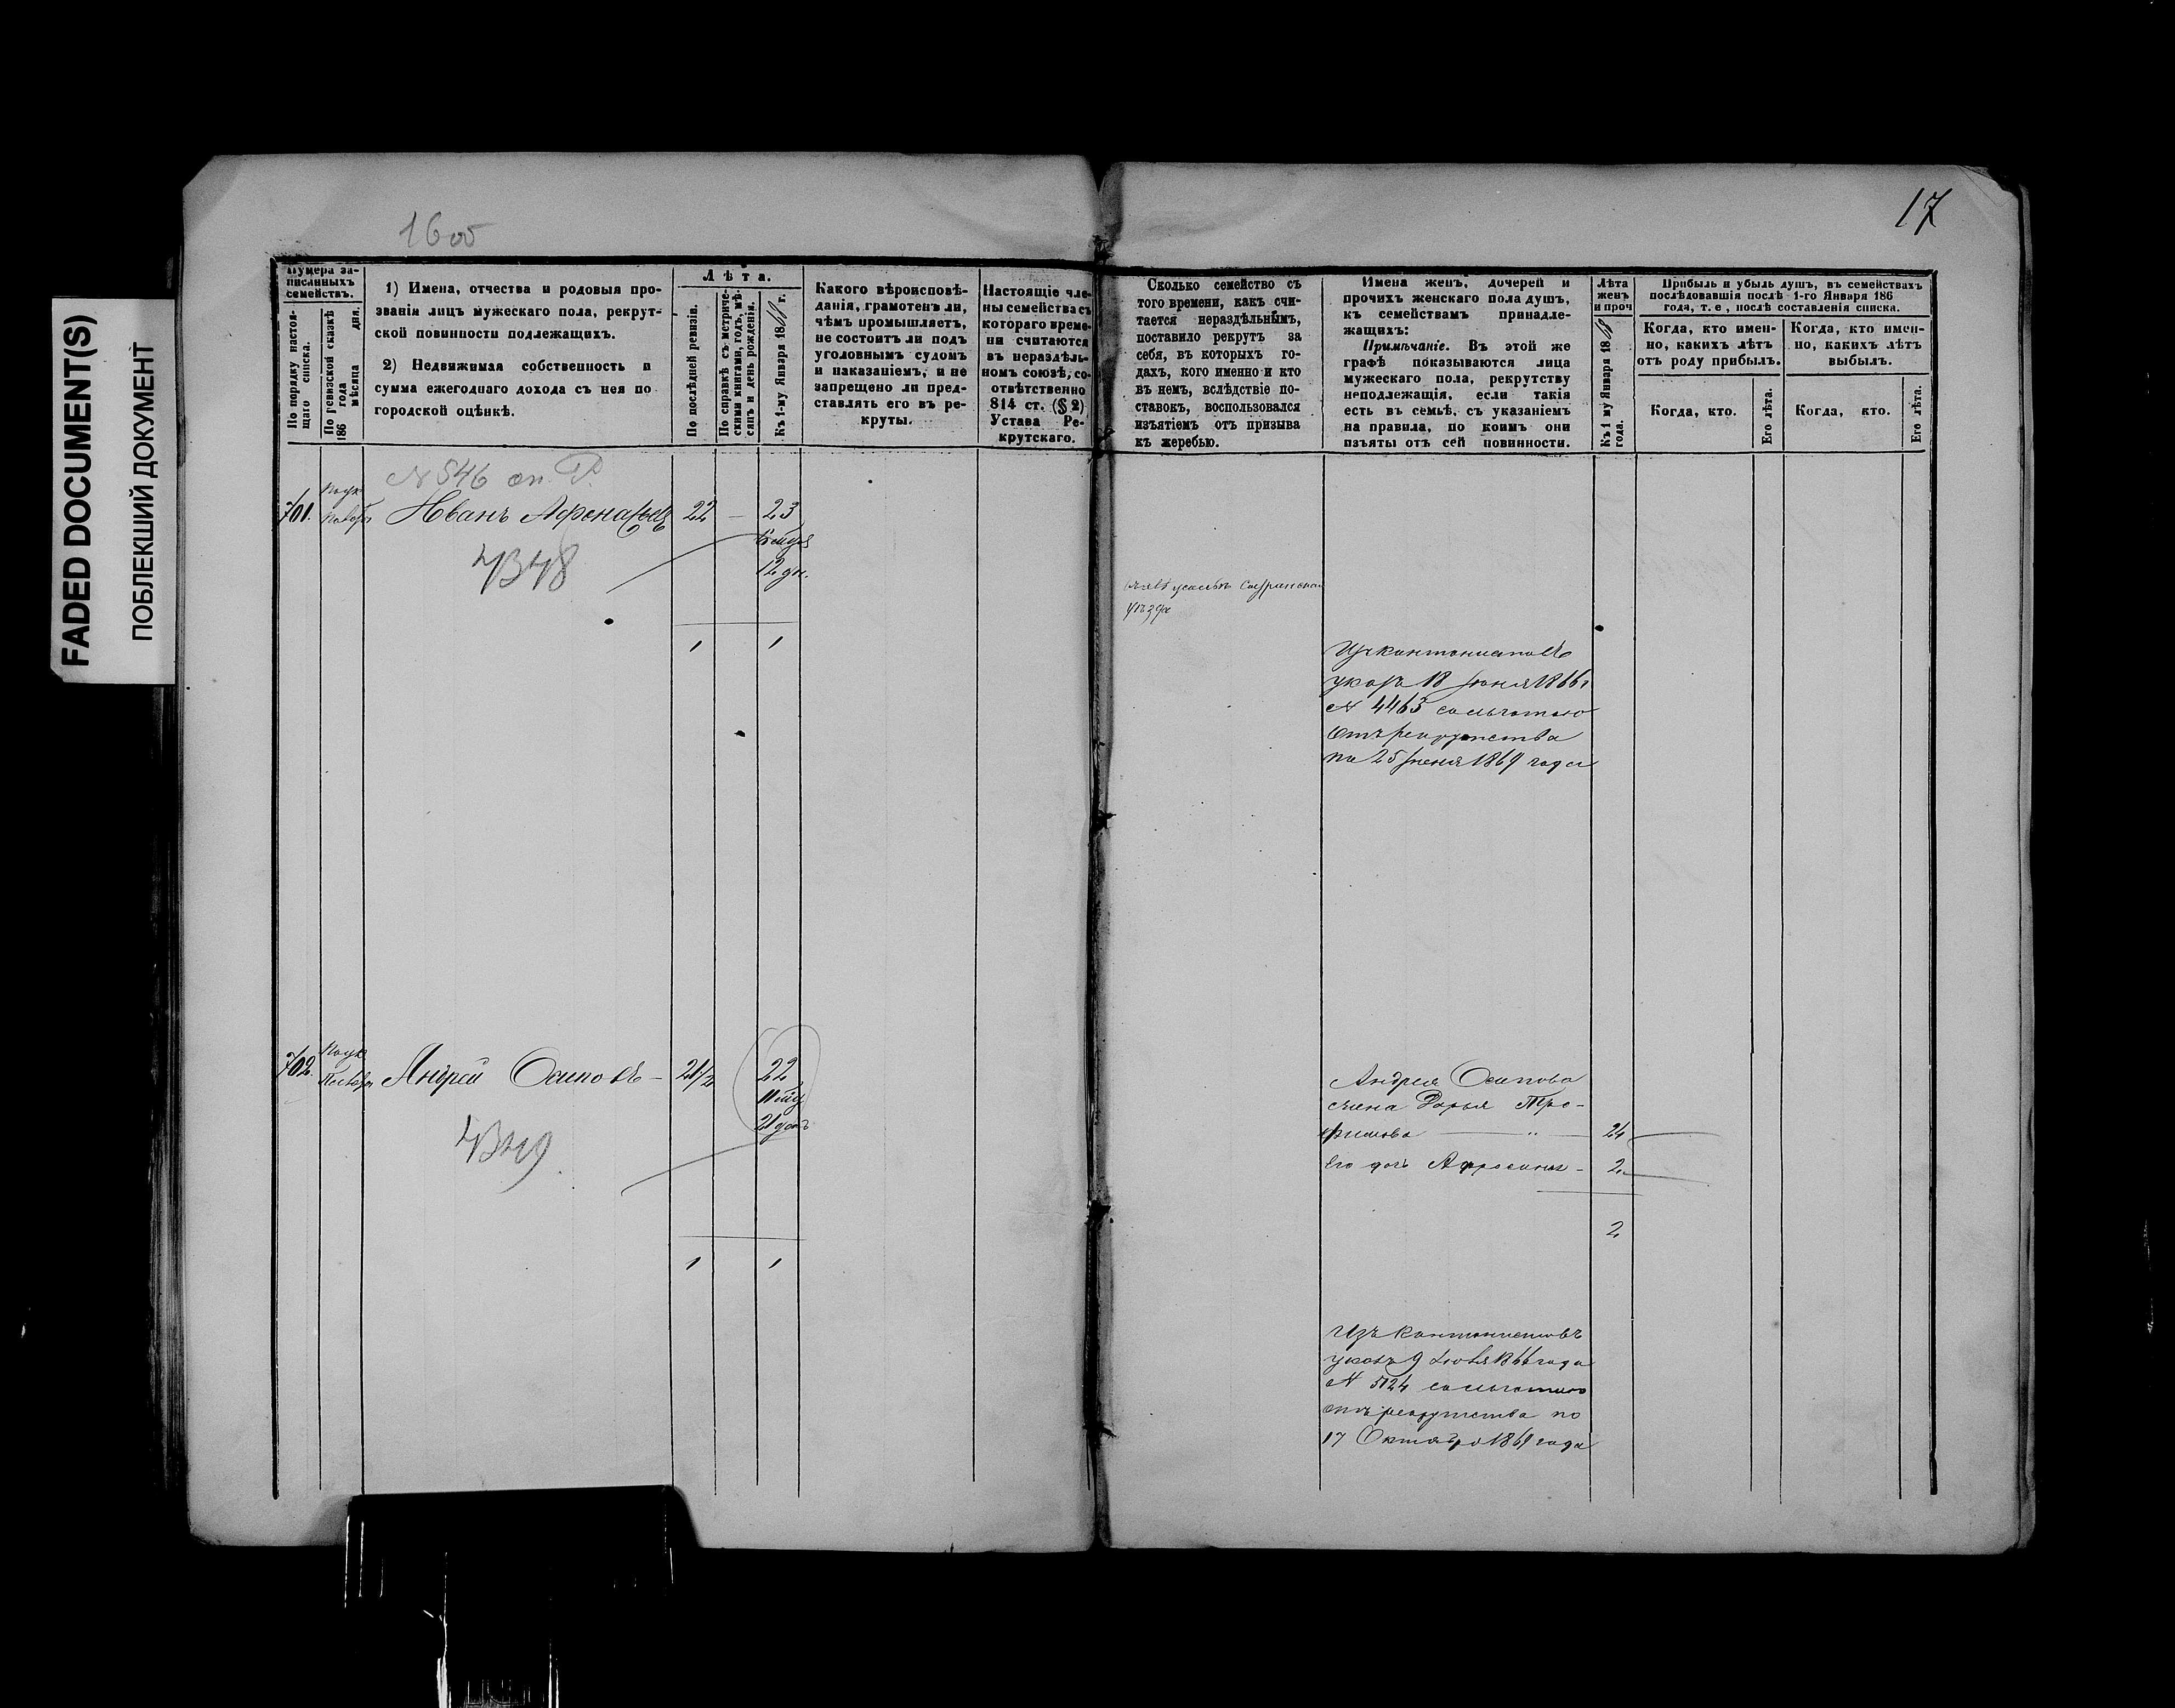 FADED DOCUMENT(S)
ПОБЛЕКШИЙ ДОКУМЕНТ
17
Нумера за-
писанныхъ
семействъ.
По порядку настоя-
щаго списка.
По ревизской сказкѣ
186 года
мѣсяца дня.
1) Имена, отчества и родовыя про-
званія лицъ мужескаго пола, рекрут-
ской повинности подлежащихъ.
2) Недвижимая собственность и
сумма ежегоднаго дохода съ нея по
городской оцѣнкѣ.
Лѣта.
По послѣдней ревизіи.
По справкѣ съ метриче-
скими книгами, годъ, мѣ-
сяцъ и день рожденія.
Къ 1-му Января 18 г.
Какого вѣроисповѣ-
данія, грамотенъ ли,
чѣмъ промышляетъ,
не состоитъ ли подъ
уголовнымъ судомъ
и наказаніемъ, и не
запрещено ли пред-
ставлять его въ ре-
круты.
Настоящіе чле-
ны семейства съ
котораго време-
ни считаются
въ нераздѣль-
номъ союзѣ, со-
отвѣтственно
814 ст. (§ 2)
Устава Ре-
крутскаго.
Сколько семейство съ
того времени, какъ счи-
тается нераздѣльнымъ,
поставило рекрутъ за
себя, въ которыхъ го-
дахъ, кого именно и кто
въ немъ, вслѣдствіе по-
ставокъ, воспользовался
изъятіемъ отъ призыва
къ жеребью.
Имена женъ, дочерей и
прочихъ женскаго пола душъ,
къ семействамъ принадле-
жащихъ:
Примѣчаніе. Въ этой же
графѣ показываются лица
мужескаго пола, рекрутству
неподлежащія, если такія
есть въ семьѣ, съ указаніемъ
на правила, по коимъ они
изъяты отъ сей повинности.
Лѣта
женъ
и проч
Къ 1 му Января 18
года.
Прибыль и убыль душъ, въ семействахъ
послѣдовавшія послѣ 1-го Января 186
года, т. е , послѣ составленія списка.
Когда, кто имен-
но, какихъ лѣтъ
отъ роду прибылъ.
Когда, кто имен-
но, какихъ лѣтъ
выбылъ.
Когда, кто.
Его лѣта.
Когда, кто.
Его лѣта.
N 546
701. Иванъ Афонасьевъ 22 — 23
12 дн.
4348
уѣзда
1 1
Изъ кантонистовъ
указъ 18 Іюня 1866 г
N 4463 съ льготою
отъ рекрутства
по 25 Іюня 1869 года
702. Андрей Осиповъ — 21 1/2 22
4349
Андрея Осипова
жена Дарья Тро-
фимова — " — 24
Его дочь Афросинья - 2
2
1 1
Изъ кантонистовъ
указъ 9 Іюля 1866 года
N 5124 съ льготою
отъ рекрутства по
17 Октября 1869 года